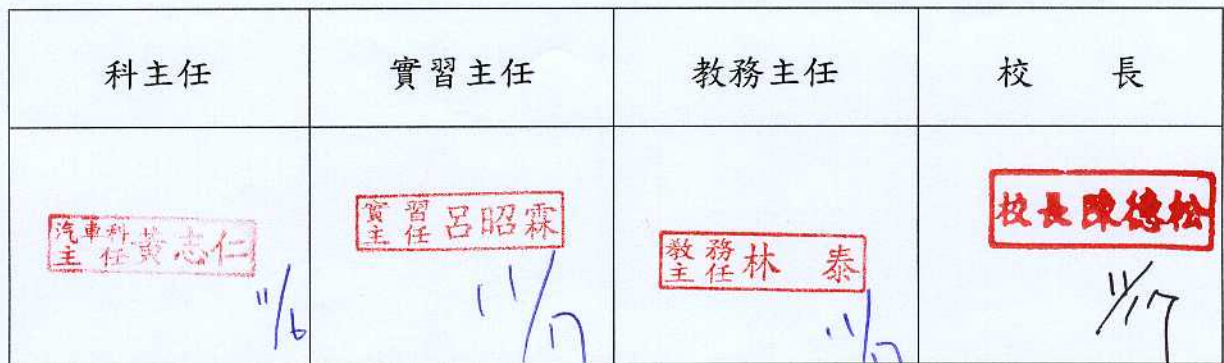 科主任 實習主任 教務主任 校長
汽車科主任 黃志仁
11/6
實習主任 呂昭霖
11/17
教務主任 林泰
11/17
校長陳德松
11/17